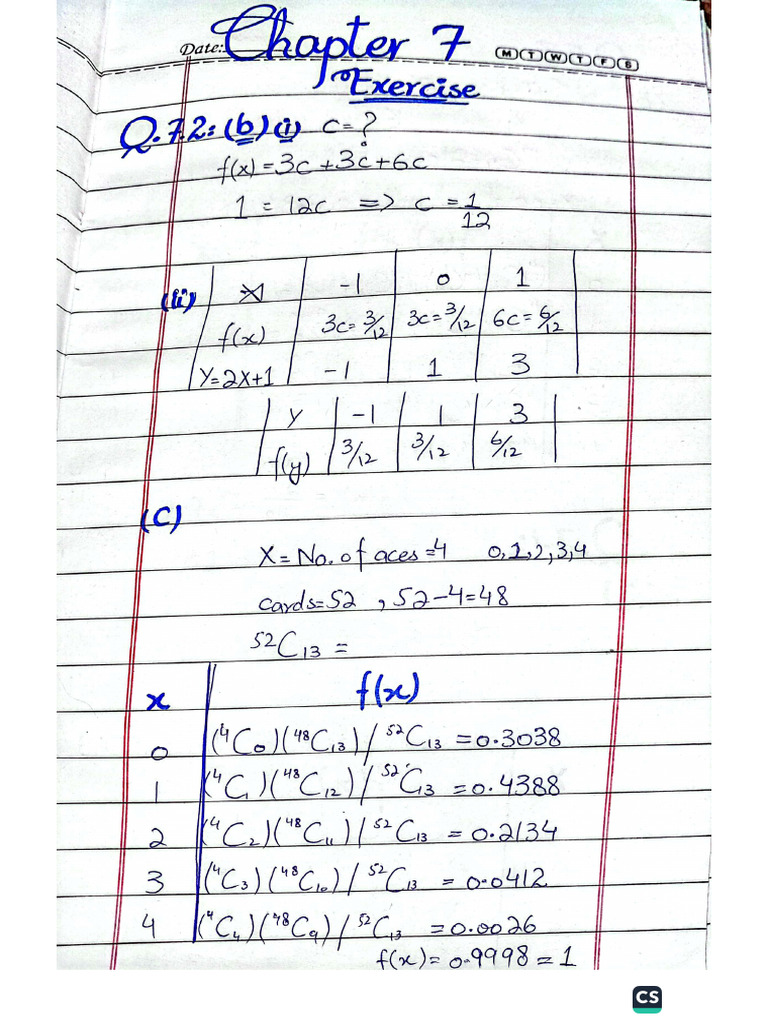 Date: Chapter 7 M T W T F S
Exercise
Q.7.2: (b) (i) c = ?
f(x) = 3c + 3c + 6c
1 = 12c => c = 1/12
(ii) X -1 0 1
f(x) 3c = 3/12 3c = 3/12 6c = 6/12
Y=2X+1 -1 1 3
Y -1 1 3
f(y) 3/12 3/12 6/12
(C)
X = No. of aces = 4 0,1,2,3,4
cards = 52 , 52-4=48
⁵²C₁₃ =
x f(x)
0 (⁴C₀)(⁴⁸C₁₃) / ⁵²C₁₃ = 0.3038
1 (⁴C₁)(⁴⁸C₁₂) / ⁵²C₁₃ = 0.4388
2 (⁴C₂)(⁴⁸C₁₁) / ⁵²C₁₃ = 0.2134
3 (⁴C₃)(⁴⁸C₁₀) / ⁵²C₁₃ = 0.0412
4 (⁴C₄)(⁴⁸C₉) / ⁵²C₁₃ = 0.0026
f(x) = 0.9998 = 1
CS